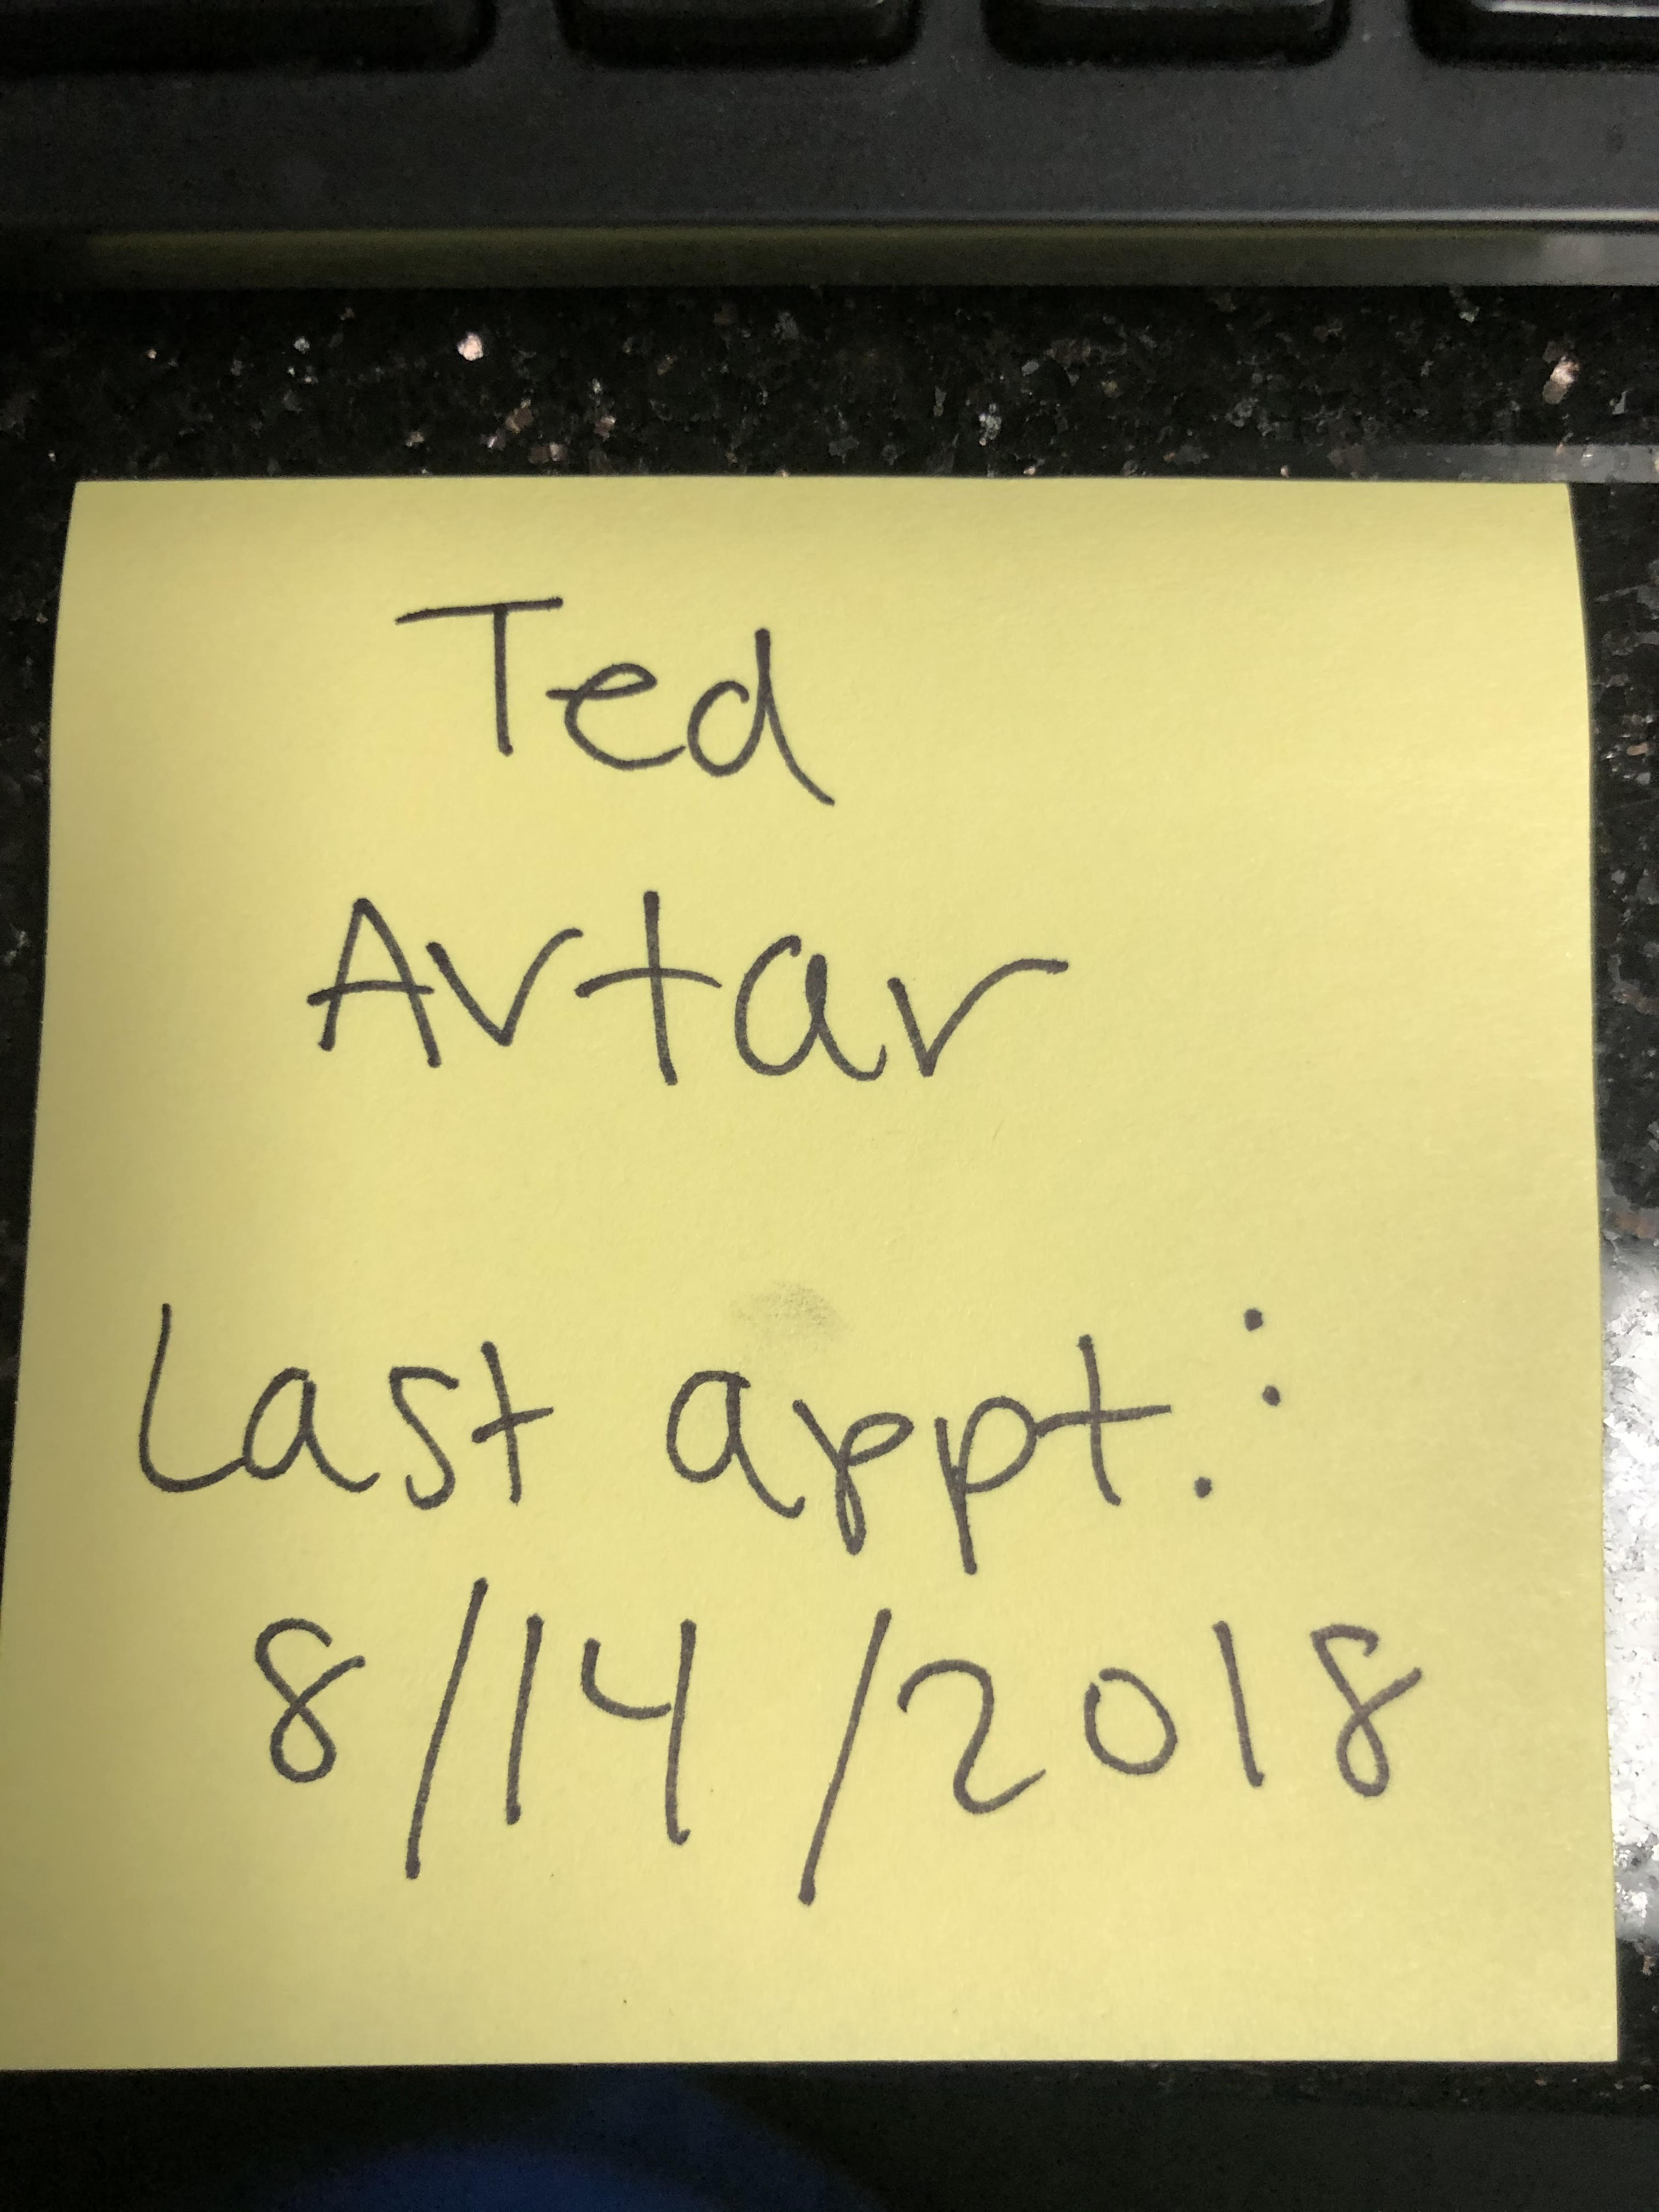 Ted
Avtar
Last appt.:
8/14/2018